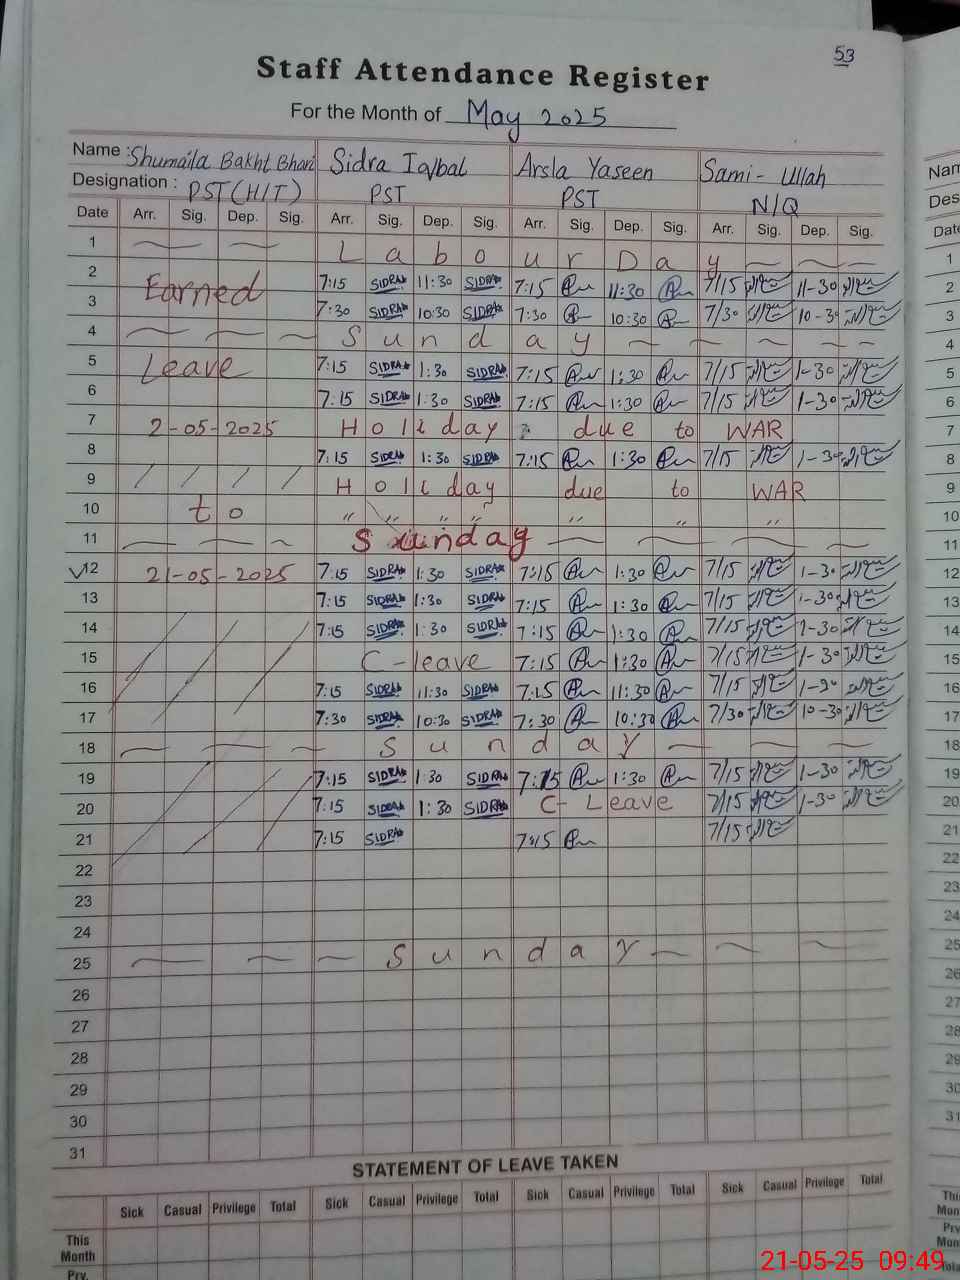 53
Staff Attendance Register
For the Month of May 2025
Name : Shumaila Bakht Bhari Sidra Iqbal Arsla Yaseen Sami-Ullah
Designation : PST(H/T) PST PST N/Q
Date Arr. Sig. Dep. Sig. Arr. Sig. Dep. Sig. Arr. Sig. Dep. Sig. Arr. Sig. Dep. Sig.
1 Labour Day
2 Earned 7:15 SIDRA 11:30 SIDRA 7:15 11:30 7/15 11-30
3 7:30 SIDRA 10:30 SIDRA 7:30 10:30 7/30 10-30
4 Sunday
5 Leave 7:15 SIDRA 1:30 SIDRA 7:15 1:30 7/15 1-30
6 7:15 SIDRA 1:30 SIDRA 7:15 1:30 7/15 1-30
7 2-05-2025 Holiday due to WAR
8 7:15 SIDRA 1:30 SIDRA 7:15 1:30 7/15 1-30
9 / / / / Holiday due to WAR
10 to " " " " " " "
11 Sunday
12 21-05-2025 7:15 SIDRA 1:30 SIDRA 7:15 1:30 7/15 1-30
13 7:15 SIDRA 1:30 SIDRA 7:15 1:30 7/15 1-30
14 7:15 SIDRA 1:30 SIDRA 7:15 1:30 7/15 1-30
15 C-leave 7:15 1:30 7/15 1-30
16 7:15 SIDRA 11:30 SIDRA 7:15 11:30 7/15
17 7:30 SIDRA 10:30 SIDRA 7:30 10:30 7/30 10-30
18 Sunday
19 7:15 SIDRA 1:30 SIDRA 7:15 1:30 7/15 1-30
20 7:15 SIDRA 1:30 SIDRA C-Leave 7/15 1-30
21 7:15 SIDRA 7:15 7/15
22
23
24
25 Sunday
26
27
28
29
30
31
STATEMENT OF LEAVE TAKEN
Sick Casual Privilege Total Sick Casual Privilege Total Sick Casual Privilege Total Sick Casual Privilege Total
This
Month
Prv.
21-05-25 09:49